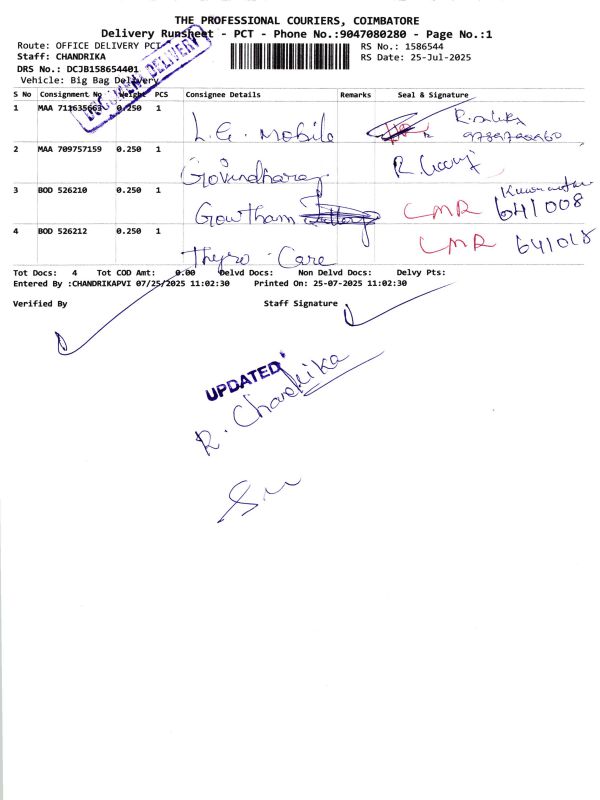 THE PROFESSIONAL COURIERS, COIMBATORE
Delivery Runsheet - PCT - Phone No.:9047080280 - Page No.:1
Route: OFFICE DELIVERY PCT
RS No.: 1586544
Staff: CHANDRIKA
RS Date: 25-Jul-2025
DRS No.: DCJB158654401
Vehicle: Big Bag Delivery
DOCUMENT DELIVERY
S No Consignment No Weight PCS Consignee Details Remarks Seal & Signature
1 MAA 711635663 0.250 1 L.G. Mobile
2 MAA 709757159 0.250 1 Govindharaj
3 BOD 526210 0.250 1 Gowtham CMR 641008
4 BOD 526212 0.250 1 Thyro Care CMR 641018
Tot Docs: 4 Tot COD Amt: 0.00 Delvd Docs: Non Delvd Docs: Delvy Pts:
Entered By :CHANDRIKAPVI 07/25/2025 11:02:30 Printed On: 25-07-2025 11:02:30
Verified By Staff Signature
UPDATED
R. Chandrika